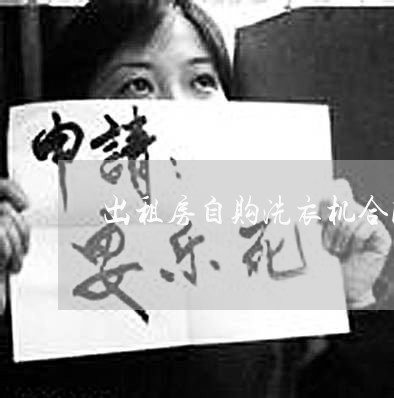 申請：
出租房自购洗衣机合
安乐死